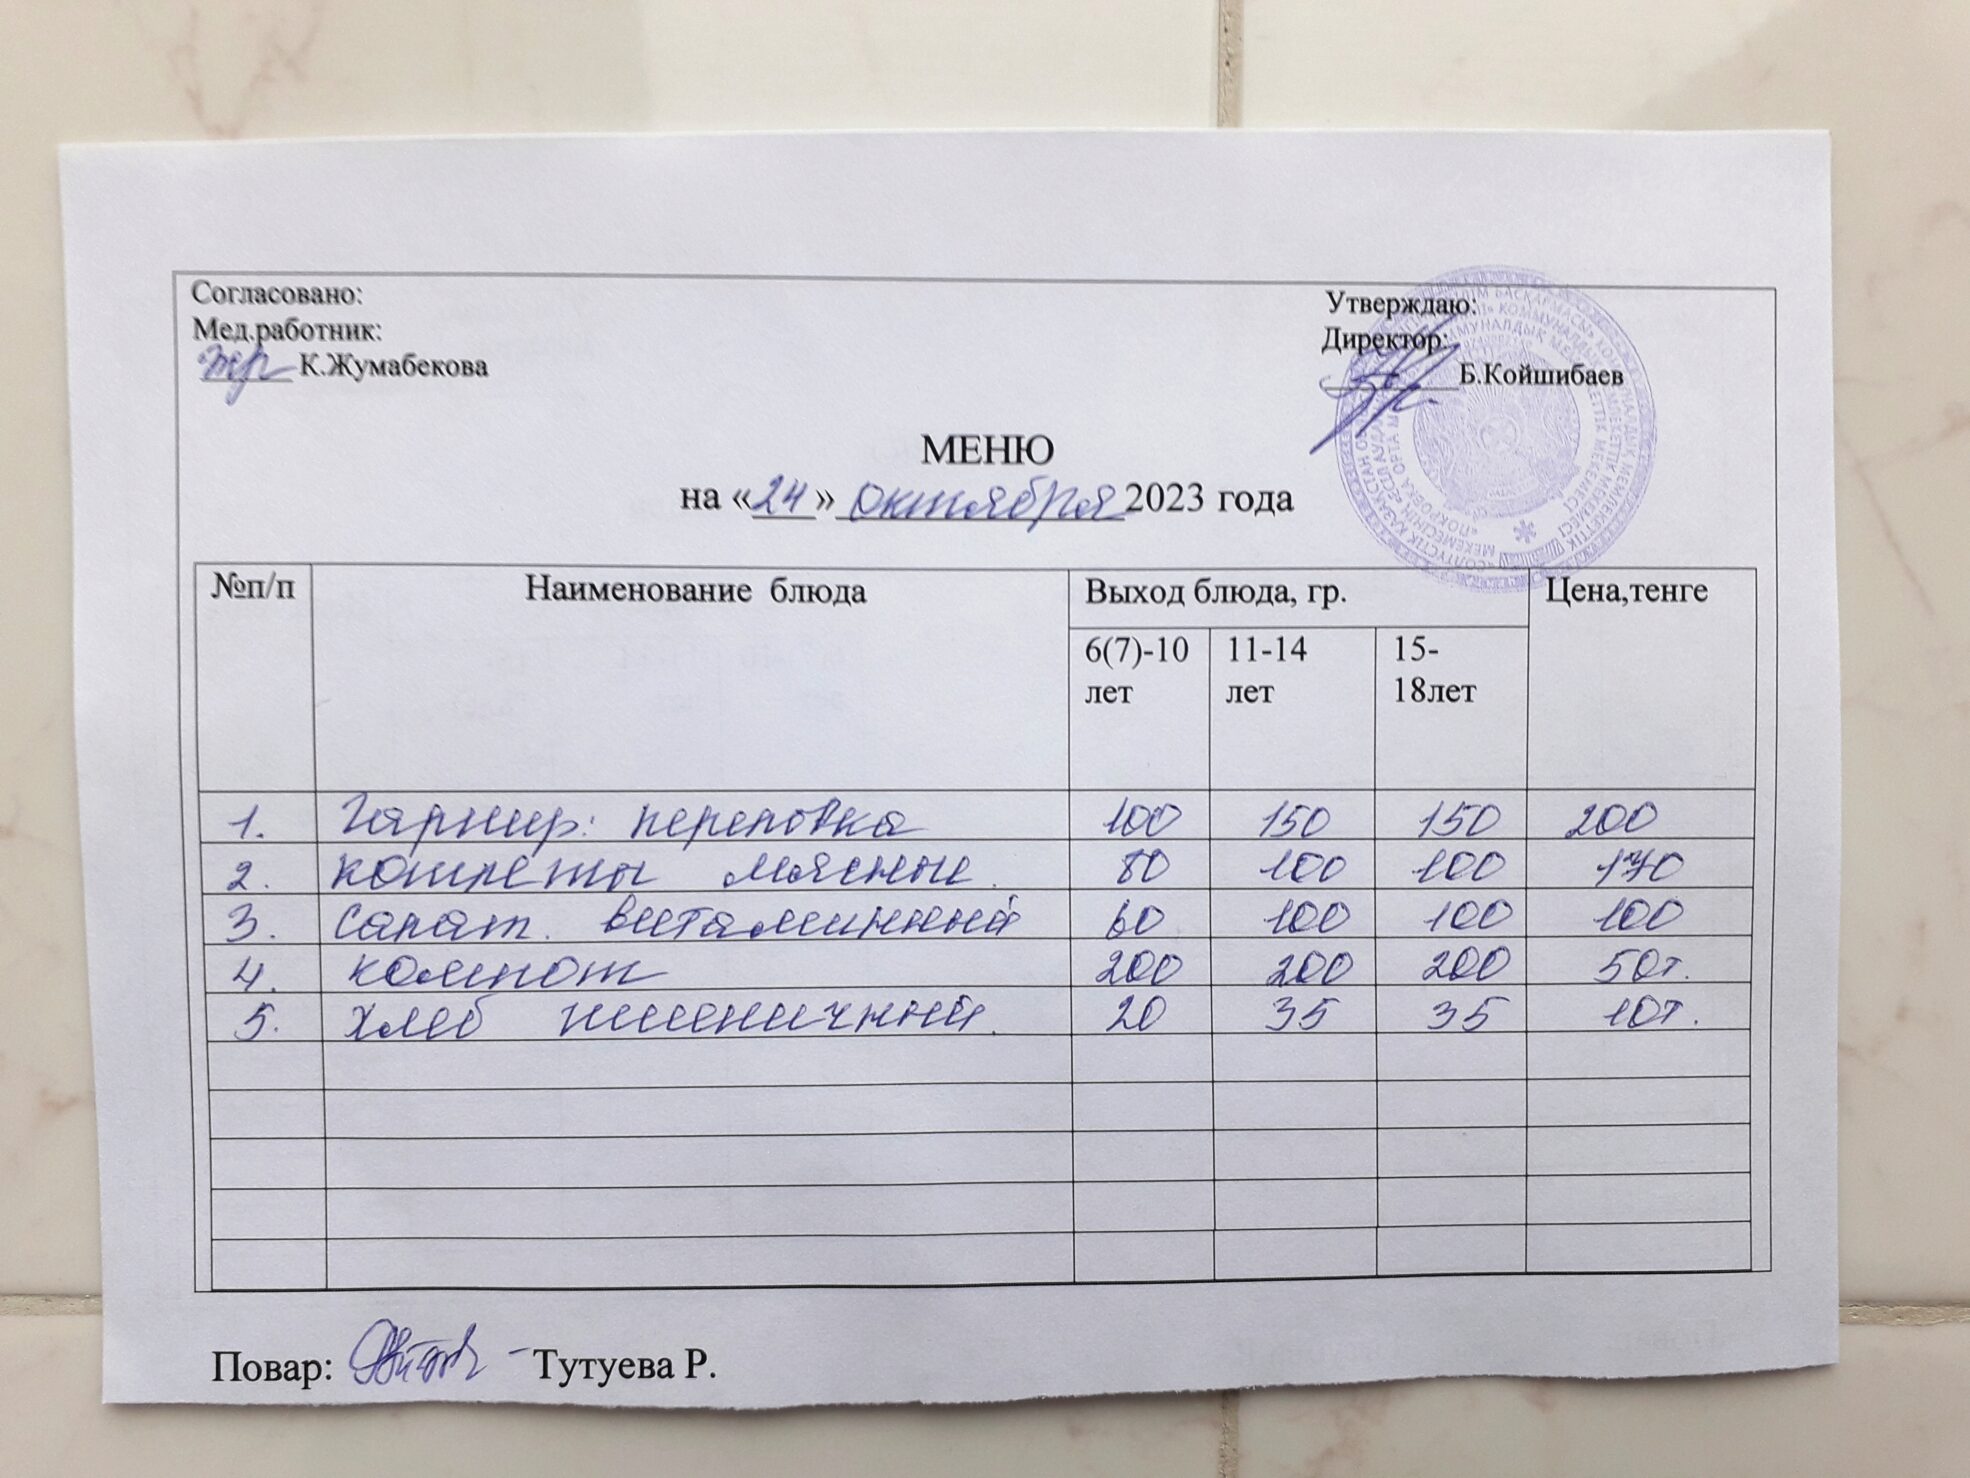 Согласовано:
Мед.работник:
К.Жумабекова
Утверждаю:
Директор:
Б.Койшибаев
МЕНЮ
на «24» октября 2023 года
№п/п Наименование блюда Выход блюда, гр. Цена,тенге
6(7)-10 лет 11-14 лет 15-18лет
1. Гарнир: перловка 100 150 150 200
2. котлеты мясные. 80 100 100 170
3. Салат. витаминный 60 100 100 100
4. компот 200 200 200 50т.
5. хлеб пшеничный. 20 35 35 10т.
Повар: Тутуева Р.